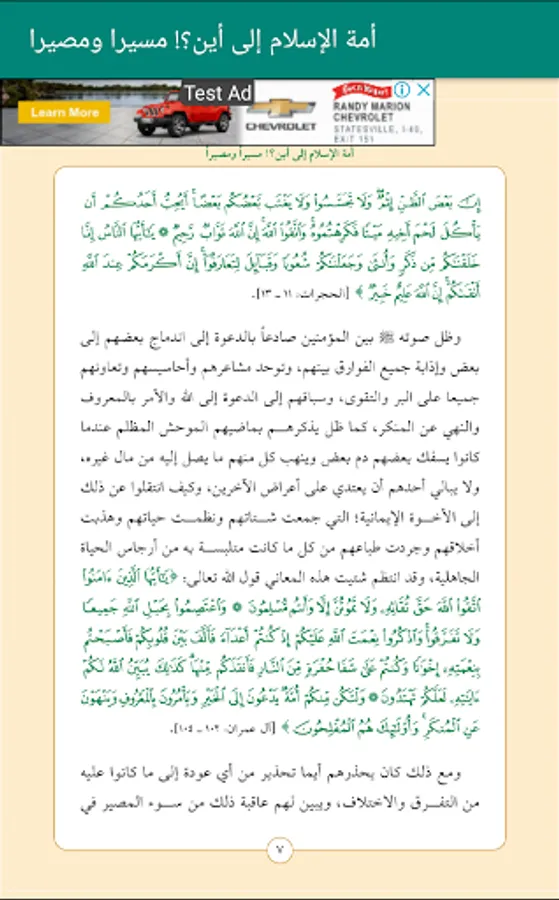 أمة الإسلام إلى أين؟! مسيرا ومصيرا
Learn More
Test Ad
CHEVROLET
RANDY MARION
CHEVROLET
STATESVILLE, I-40,
EXIT 151
أمة الإسلام إلى أين؟! مسيراً ومصيراً
إِنَّ بَعْضَ الظَّنِّ إِثْمٌ وَلَا تَجَسَّسُوا وَلَا يَغْتَب بَّعْضُكُم بَعْضًا أَيُحِبُّ أَحَدُكُمْ أَن
يَأْكُلَ لَحْمَ أَخِيهِ مَيْتًا فَكَرِهْتُمُوهُ وَاتَّقُوا اللَّهَ إِنَّ اللَّهَ تَوَّابٌ رَّحِيمٌ ۞ يَٰٓأَيُّهَا النَّاسُ إِنَّا
خَلَقْنَٰكُم مِّن ذَكَرٍ وَأُنثَىٰ وَجَعَلْنَٰكُمْ شُعُوبًا وَقَبَآئِلَ لِتَعَارَفُوٓا إِنَّ أَكْرَمَكُمْ عِندَ اللَّهِ
أَتْقَىٰكُمْ إِنَّ اللَّهَ عَلِيمٌ خَبِيرٌ ﴾ [الحجرات: ١١ ـ ١٣].
وظل صوته ﷺ بين المؤمنين صادعاً بالدعوة إلى اندماج بعضهم إلى
بعض وإذابة جميع الفوارق بينهم، وتوحد مشاعرهم وأحاسيسهم وتعاونهم
جميعا على البر والتقوى، وسباقهم إلى الدعوة إلى الله والأمر بالمعروف
والنهي عن المنكر، كما ظل يذكرهم بماضيهم الموحش المظلم عندما
كانوا يسفك بعضهم دم بعض وينهب كل منهم ما يصل إليه من مال غيره،
ولا يبالي أحدهم أن يعتدي على أعراض الآخرين، وكيف انتقلوا عن ذلك
إلى الأخوة الإيمانية؛ التي جمعت شتاتهم ونظمت حياتهم وهذبت
أخلاقهم وجردت طباعهم من كل ما كانت متلبسة به من أرجاس الحياة
الجاهلية، وقد انتظم شتيت هذه المعاني قول الله تعالى: ﴿يَٰٓأَيُّهَا الَّذِينَ ءَامَنُوا
اتَّقُوا اللَّهَ حَقَّ تُقَاتِهِ وَلَا تَمُوتُنَّ إِلَّا وَأَنتُم مُّسْلِمُونَ ۞ وَاعْتَصِمُوا بِحَبْلِ اللَّهِ جَمِيعًا
وَلَا تَفَرَّقُوا وَاذْكُرُوا نِعْمَتَ اللَّهِ عَلَيْكُمْ إِذْ كُنتُمْ أَعْدَآءً فَأَلَّفَ بَيْنَ قُلُوبِكُمْ فَأَصْبَحْتُم
بِنِعْمَتِهِ إِخْوَٰنًا وَكُنتُمْ عَلَىٰ شَفَا حُفْرَةٍ مِّنَ النَّارِ فَأَنقَذَكُم مِّنْهَا كَذَٰلِكَ يُبَيِّنُ اللَّهُ لَكُمْ
ءَايَٰتِهِ لَعَلَّكُمْ تَهْتَدُونَ ۞ وَلْتَكُن مِّنكُمْ أُمَّةٌ يَدْعُونَ إِلَى الْخَيْرِ وَيَأْمُرُونَ بِالْمَعْرُوفِ وَيَنْهَوْنَ
عَنِ الْمُنكَرِ وَأُو۟لَٰٓئِكَ هُمُ الْمُفْلِحُونَ ﴾ [آل عمران: ١٠٢ ـ ١٠٤].
ومع ذلك كان يحذرهم أيما تحذير من أي عودة إلى ما كانوا عليه
من التفرق والاختلاف، ويبين لهم عاقبة ذلك من سوء المصير في
٧